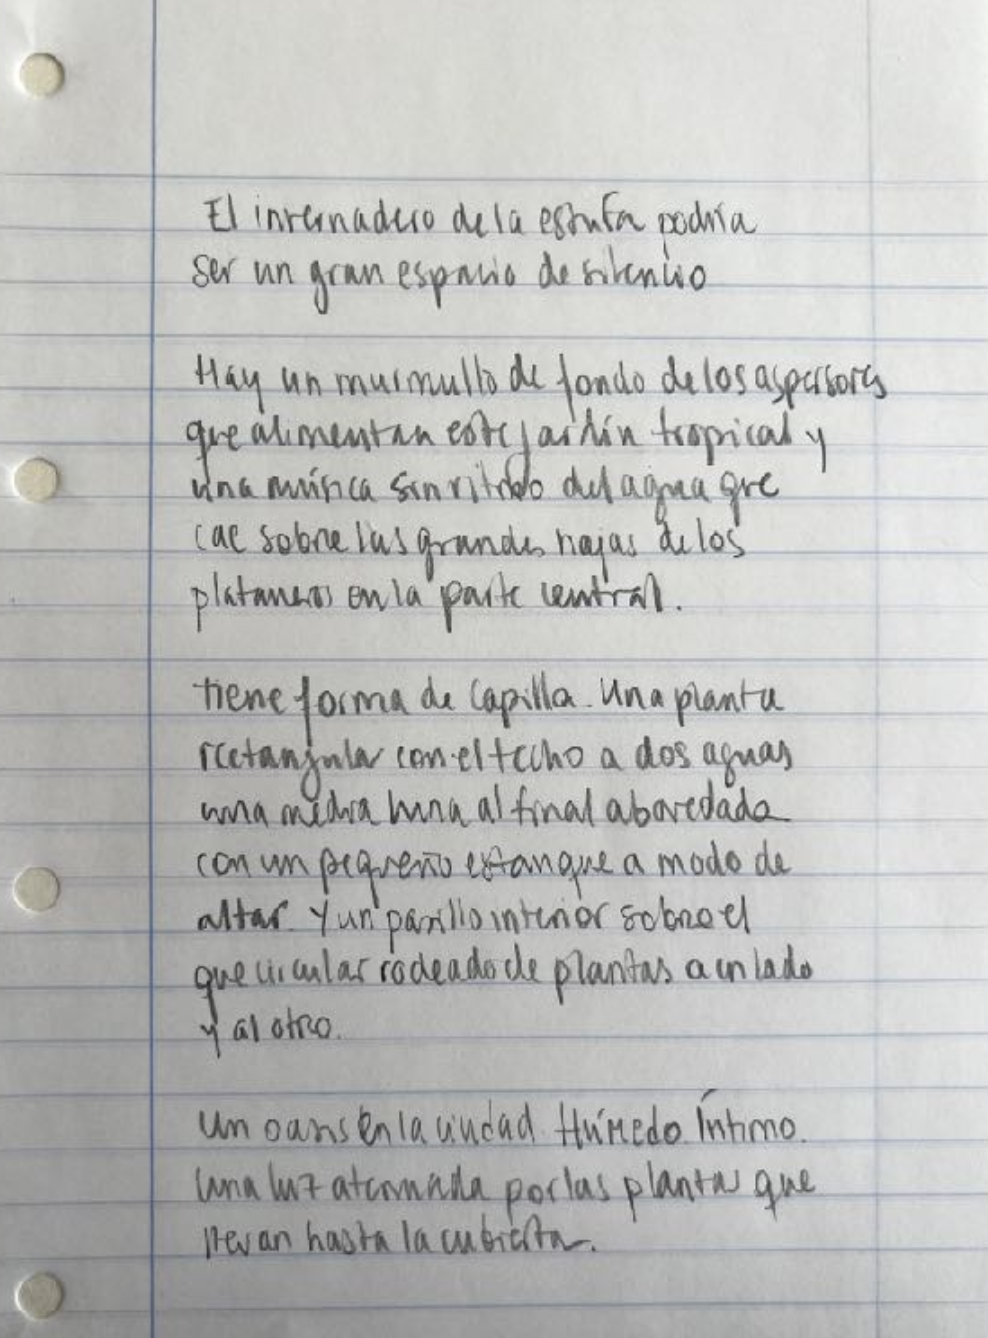 El invernadero de la estufa podría
ser un gran espacio de silencio
Hay un murmullo de fondo de los aspersores
que alimentan este jardín tropical y
una música sin ritmo del agua que
cae sobre las grandes hojas de los
plataneros en la parte central.
Tiene forma de capilla. Una planta
rectangular con el techo a dos aguas
una media luna al final abovedada
con un pequeño estanque a modo de
altar. Y un pasillo interior sobre el
que circular rodeado de plantas a un lado
y al otro.
Un oasis en la ciudad. Húmedo. Íntimo.
Una luz atenuada por las plantas que
llevan hasta la cubierta.